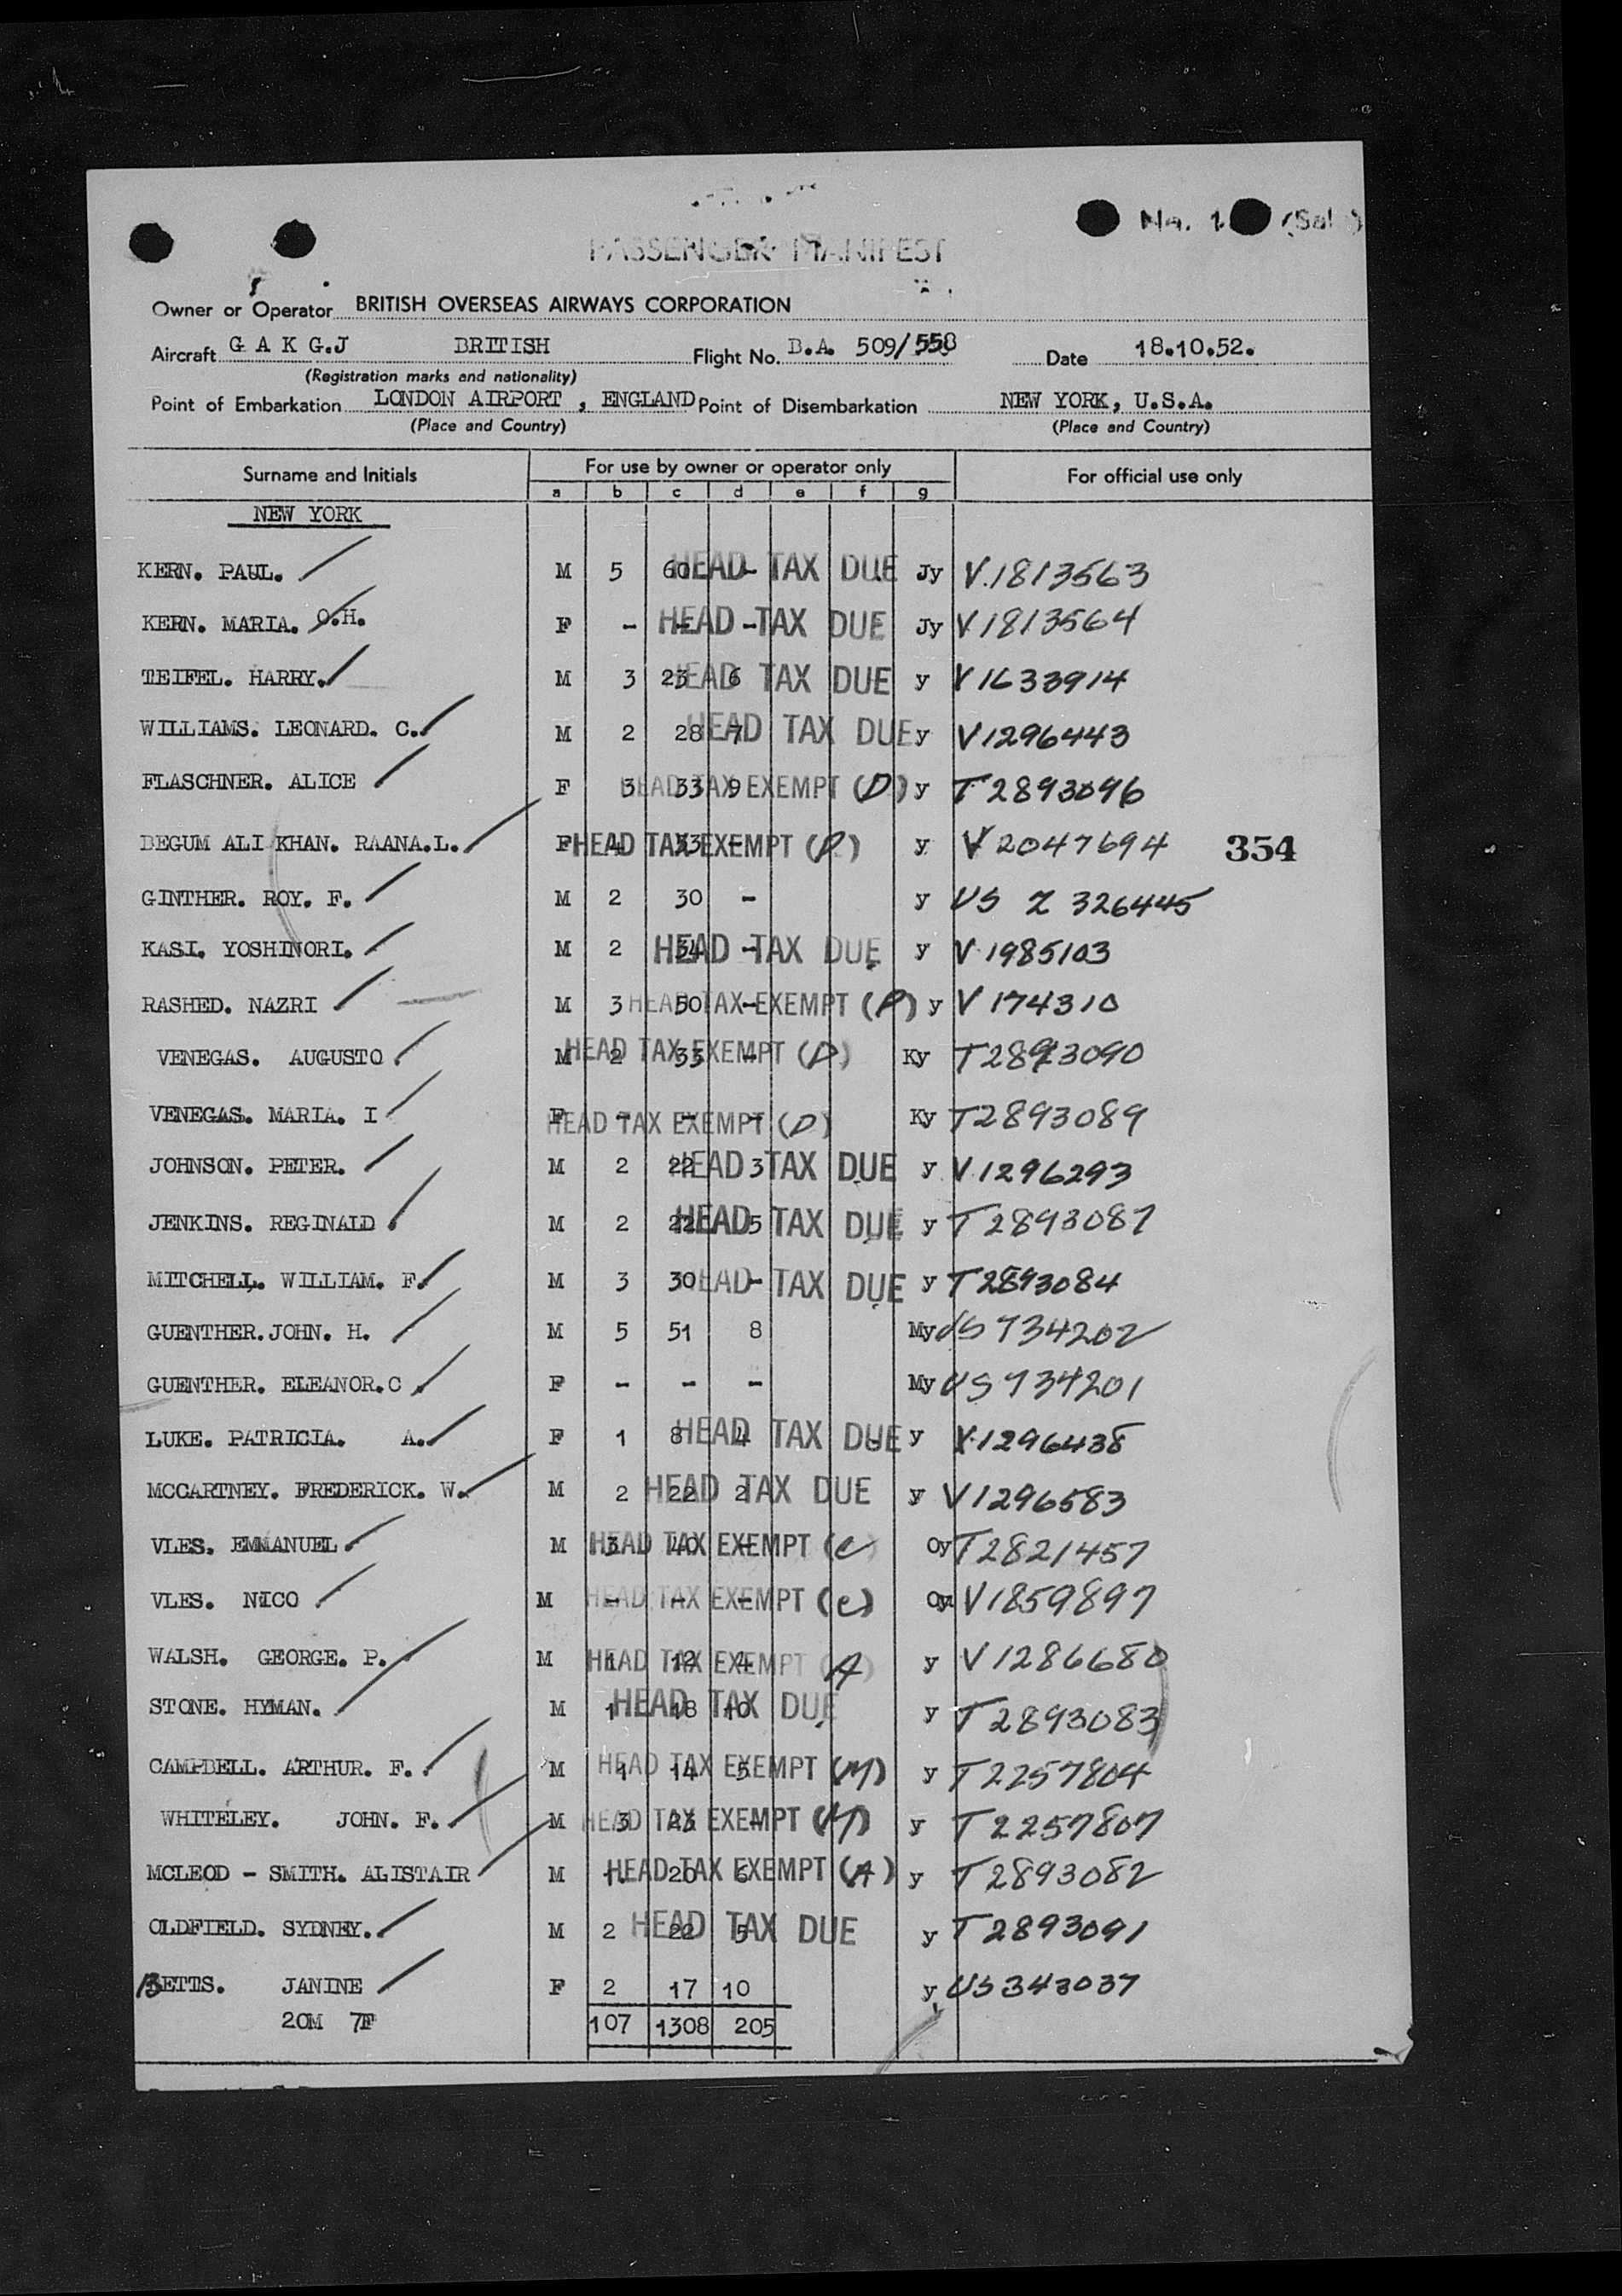 No. 1 (Sal )
PASSENGER MANIFEST
Owner or Operator BRITISH OVERSEAS AIRWAYS CORPORATION
Aircraft G A K G.J BRITISH Flight No. B.A. 509/558 Date 18.10.52.
(Registration marks and nationality)
Point of Embarkation LONDON AIRPORT , ENGLAND Point of Disembarkation NEW YORK, U.S.A.
(Place and Country) (Place and Country)
Surname and Initials For use by owner or operator only For official use only
a b c d e f g
NEW YORK
KERN. PAUL. M 5 60 - HEAD TAX DUE Jy V.1813563
KERN. MARIA. O.H. F - - - HEAD TAX DUE Jy V1813564
TEIFEL. HARRY. M 3 23 6 HEAD TAX DUE y V1633914
WILLIAMS. LEONARD. C. M 2 28 7 HEAD TAX DUE y V1296443
FLASCHNER. ALICE F 3 33 9 HEAD TAX EXEMPT (D) y T2893096
BEGUM ALI KHAN. RAANA.L. F 4 33 - HEAD TAX EXEMPT (P) y V2047694 354
GINTHER. ROY. F. M 2 30 - y US Z 326445
KASI. YOSHINORI. M 2 34 - HEAD TAX DUE y V1985103
RASHED. NAZRI M 3 50 - HEAD TAX EXEMPT (P) y V174310
VENEGAS. AUGUSTO M 2 33 - HEAD TAX EXEMPT (D) Ky T2893090
VENEGAS. MARIA. I F - - - HEAD TAX EXEMPT (D) Ky T2893089
JOHNSON. PETER. M 2 22 3 HEAD TAX DUE y V1296293
JENKINS. REGINALD M 2 22 5 HEAD TAX DUE y T2893087
MITCHELL. WILLIAM. F. M 3 30 - HEAD TAX DUE y T2893084
GUENTHER.JOHN. H. M 5 51 8 My US 734202
GUENTHER. ELEANOR.C F - - - My US 734201
LUKE. PATRICIA. A. F 1 8 4 HEAD TAX DUE y V1296438
MCCARTNEY. FREDERICK. W. M 2 22 2 HEAD TAX DUE y V1296583
VLES. EMMANUEL M 3 40 - HEAD TAX EXEMPT (e) Oy T2821457
VLES. NICO M - - - HEAD TAX EXEMPT (e) Oy V1859897
WALSH. GEORGE. P. M 1 12 4 HEAD TAX EXEMPT (A) y V1286680
STONE. HYMAN. M 1 18 10 HEAD TAX DUE y T2893083
CAMPBELL. ARTHUR. F. M 1 14 5 HEAD TAX EXEMPT (M) y T2257804
WHITELEY. JOHN. F. M 3 23 - HEAD TAX EXEMPT (M) y T2257807
MCLEOD - SMITH. ALISTAIR M 1 20 6 HEAD TAX EXEMPT (A) y T2893082
OLDFIELD. SYDNEY. M 2 22 5 HEAD TAX DUE y T2893091
BETTS. JANINE F 2 17 10 y US343037
20M 7F 107 1308 205